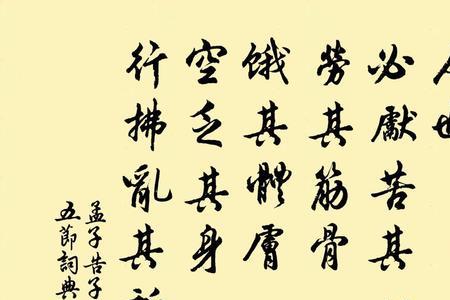 必獻苦其
勞其筋骨
餓其體膚
空乏其身
行拂亂其
孟子告子
五節詞典